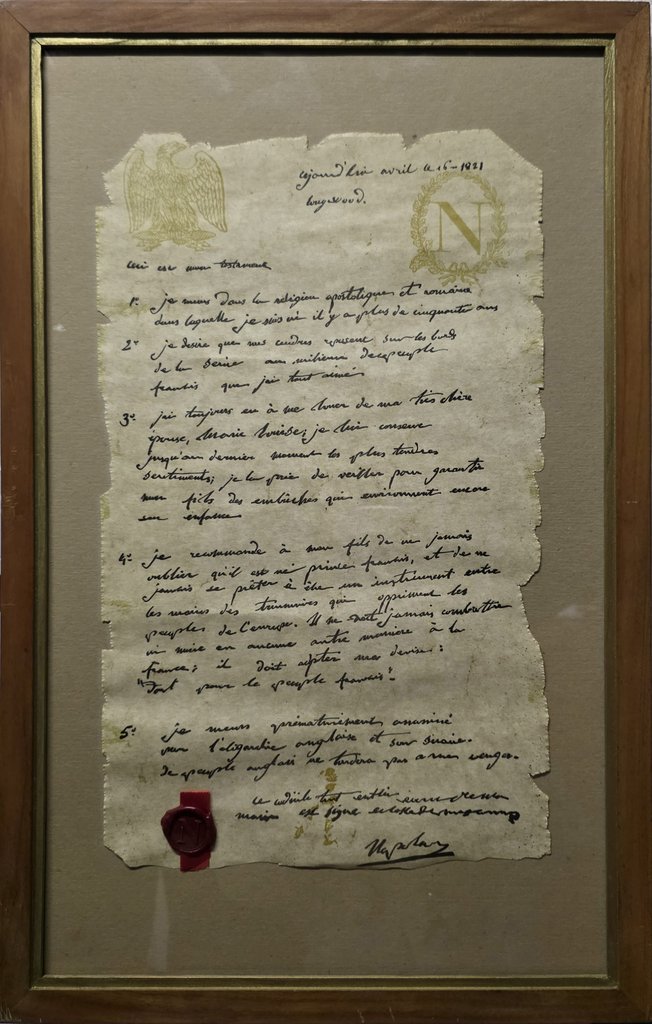 ajourd'hui avril le 16 - 1821
longwood.
N
ceci est mon testament
1º je meurs dans la religion apostolique et romaine
dans laquelle je suis né il y a plus de cinquante ans
2º je desire que mes cendres reposent sur les bords
de la seine au milieu de ce peuple
français que j'ai tant aimé
3º j'ai toujours eu à me louer de ma très chère
épouse, Marie Louise; je lui conserve
jusqu'au dernier moment les plus tendres
sentiments; je la prie de veiller pour garantir
mon fils des embûches qui environnent encore
son enfance
4º je recommande à mon fils de ne jamais
oublier qu'il est né prince français, et de ne
jamais se prêter à être un instrument entre
les mains des triumvirs qui oppriment les
peuples de l'europe. Il ne doit jamais combattre
ni nuire en aucune autre manière à la
france; il doit adopter ma devise:
"Tout pour le peuple français".
5º je meurs prématurément assassiné
par l'oligarchie anglaise et son sicaire.
le peuple anglais ne tardera pas a me venger.
ce codicile tout entier écrit de ma
main est signé et scellé de mes armes
Napoléon
N